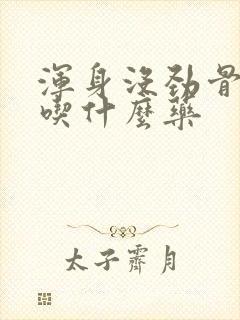 渾身沒勁骨
喫什麼藥
太子霽月